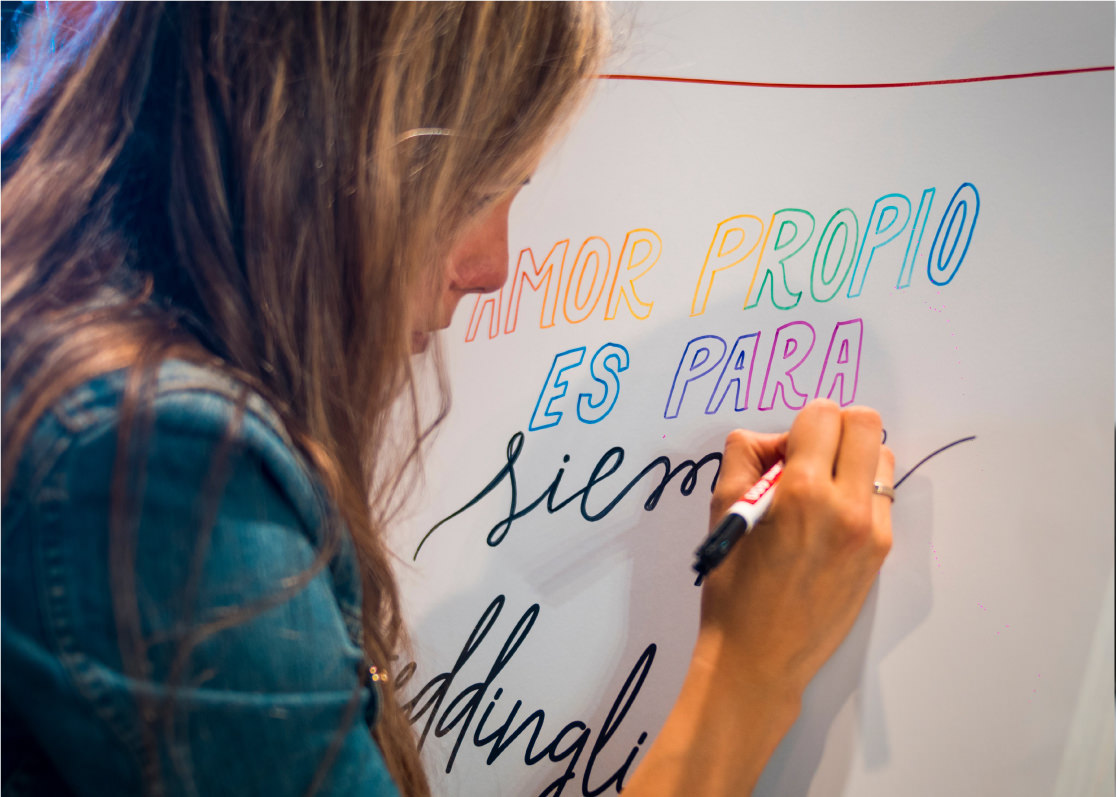 AMOR PROPIO
ES PARA
siem
eddingli